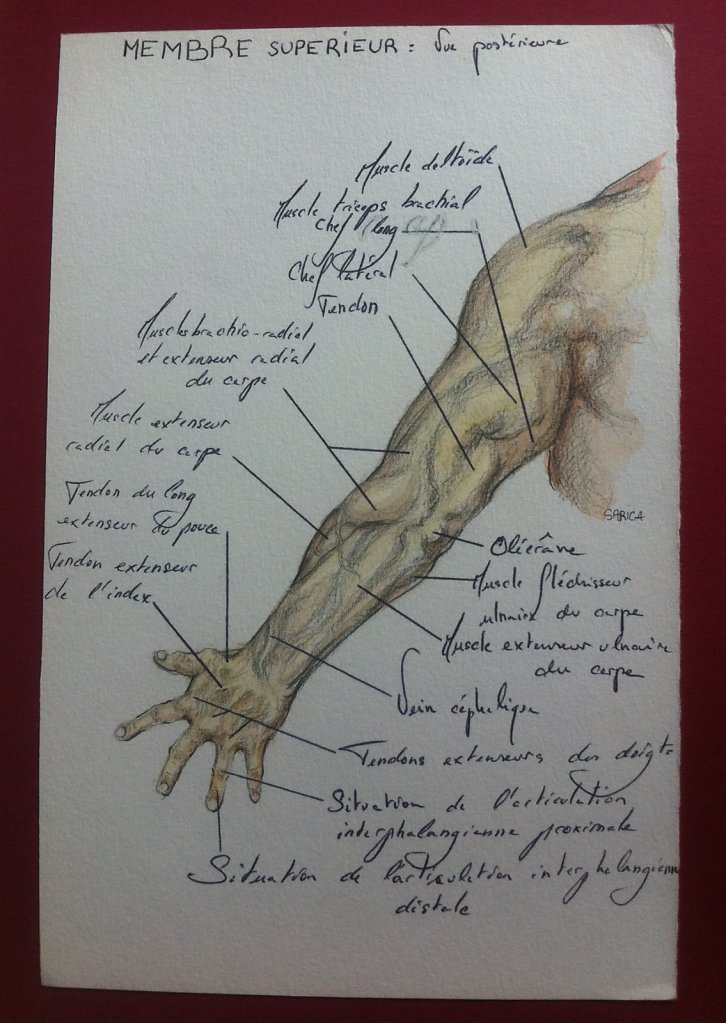 MEMBRE SUPERIEUR : Vue postérieure
Muscle deltoïde
Muscle triceps brachial
Chef long
Chef latéral
Tendon
Muscles brachio-radial
et extenseur radial
du carpe
Muscle extenseur
radial du carpe
Tendon du long
extenseur du pouce
Tendon extenseur
de l'index
SARICA
Olécrâne
Muscle fléchisseur
ulnaire du carpe
Muscle extenseur ulnaire
du carpe
Vein céphalique
Tendons extenseurs des doigts
Situation de l'articulation
interphalangienne proximale
Situation de l'articulation interphalangienne
distale